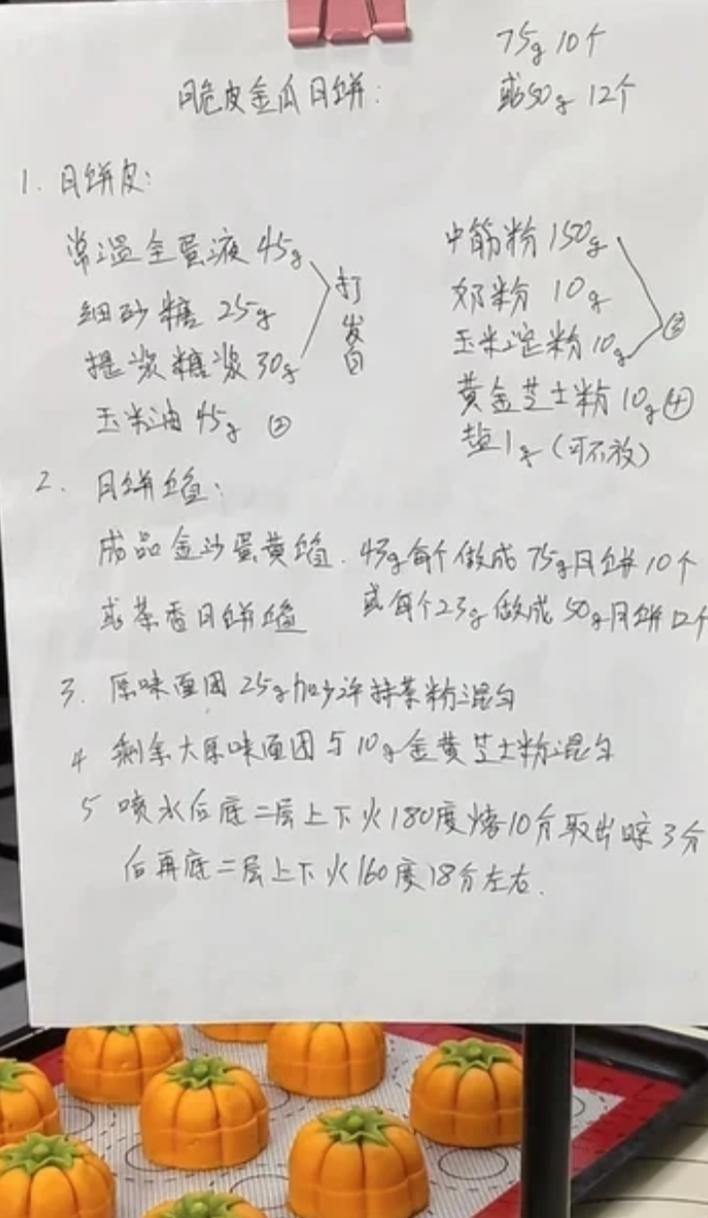 75g 10个
脆皮金瓜月饼：
或50g 12个
1. 月饼皮：
常温全蛋液 45g
细砂糖 25g
提浆糖浆 30g
打发白
玉米油 45g ②
中筋粉 150g
奶粉 10g
玉米淀粉 10g
③
黄金芝士粉 10g ④
盐1g（可不放）
2. 月饼馅：
成品金沙蛋黄馅. 43g每个做成75g月饼10个
或茶香月饼馅 或每个23g做成50g月饼12个
3. 原味面团25g加少许抹茶粉混匀
4 剩余大原味面团与10g金黄芝士粉混匀
5 喷水后底二层上下火180度烤10分取出晾3分
后再底二层上下火160度18分左右.